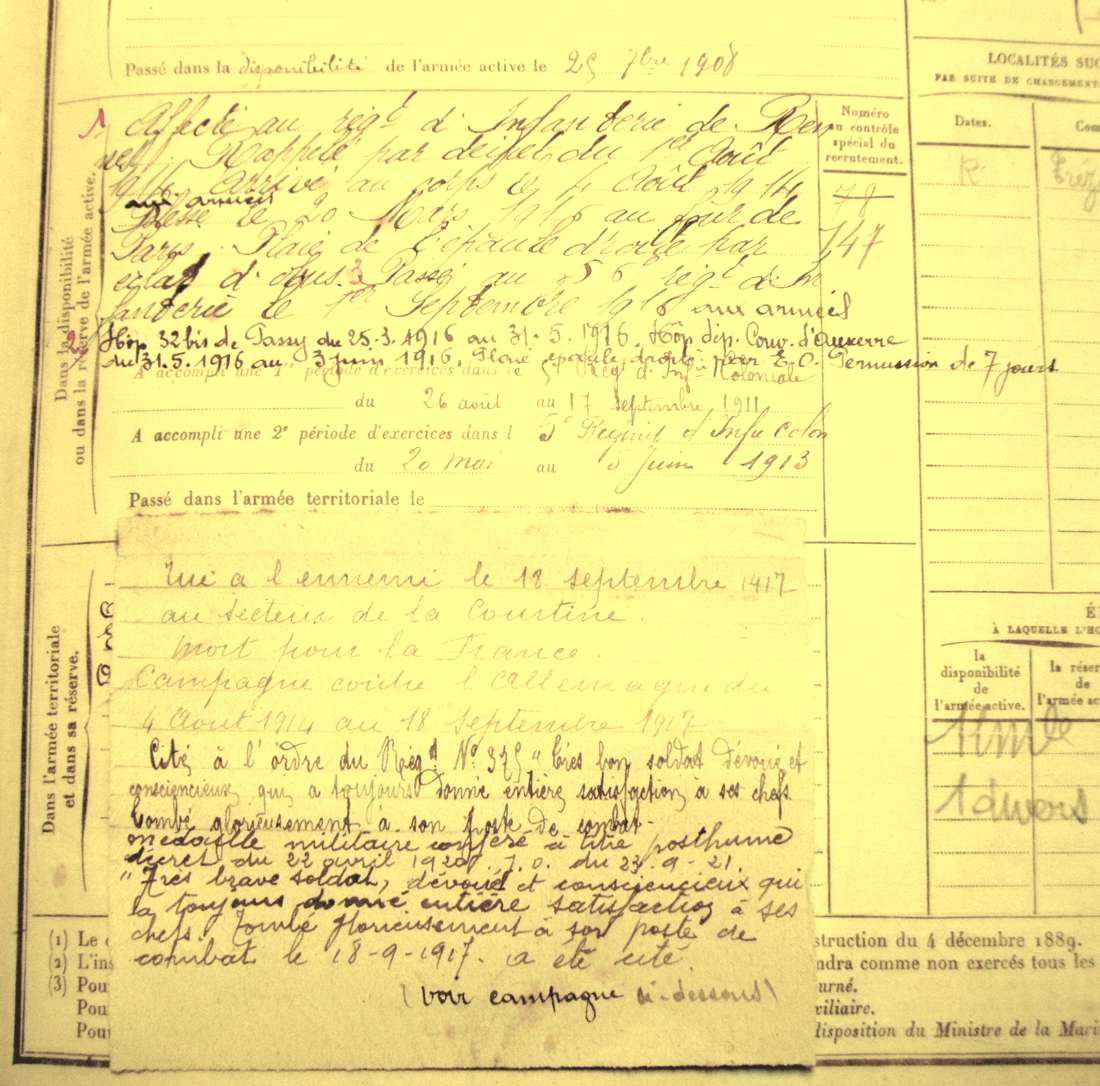 Passé dans la disponibilité de l'armée active le 25 7bre 1908
LOCALITÉS SUC
PAR SUITE DE CHANGEMENT
Dates.
Com
Numéro
au contrôle
spécial du
recrutement.
78
147
R
Tréz
Dans la disponibilité
ou dans la réserve de l'armée active.
Affecté au régt d'Infanterie de Ren
nes Rappelé par décret du 1er Août
1914 arrivé au corps le 4 Août 1914
aux armées
Blessé le 20 Mars 1916 au four de
Paris Plaie de l'épaule droite par
éclat d'obus. Passé au 56 régt d'In
fanterie le 1er Septembre 1916 aux armées
Hôp 32bis de Passy du 25.3.1916 au 31.5.1916. Hôp. dép. Conv. d'Auxerre
du 31.5.1916 au 3 juin 1916, Plaie épaule droite par E.O. Permission de 7 jours
A accompli une 1re période d'exercices dans le 5e Rég d'Infie Koloniale
du 26 août au 17 septembre 1911
A accompli une 2e période d'exercices dans l 5e Régiment d'Infie Colon
du 20 Mai au 5 Juin 1913
Passé dans l'armée territoriale le
Dans l'armée territoriale
et dans sa réserve.
Tué a l'ennemi le 18 septembre 1917
au secteur de la Courtine.
Mort pour la France.
Campagne contre l'Allemagne du
4 Août 1914 au 18 septembre 1917
Cité à l'ordre du Régt No 375 "Très bon soldat dévoué et
consciencieux qui a toujours donné entière satisfaction à ses chefs
Tombé glorieusement à son poste de combat.
médaille militaire conféré à titre posthume
décret du 22 avril 1920. J.O. du 23.9-21.
"Très brave soldat, dévoué et consciencieux qui
a toujours donné entière satisfaction à ses
chefs. Tombé glorieusement à son poste de
combat le 18-9-1917. a été cité.
(voir campagne ci-dessous)
À LAQUELLE L'HO
la
disponibilité
de
l'armée active.
la réser
de
l'armée ac
1 divers
(1) Le
(2) L'ins
(3) Pou
Pou
Pou
struction du 4 décembre 1889.
ndra comme non exercés tous les
urné.
xiliaire.
disposition du Ministre de la Mari